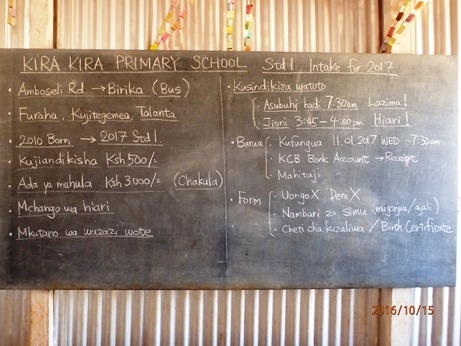 KIRA KIRA PRIMARY SCHOOL Std 1 Intake for 2017
• Amboseli Rd. → Birika (Bus)
• Furaha, Kujitegemea, Talanta
• 2010 Born → 2017 Std 1
• Kujiandikisha Ksh 500/=
• Ada ya muhula Ksh 3000/= (Chakula)
• Mchango wa hiari
• Mkutano wa wazazi wote
• Kusindikiza watoto
• Asubuhi hadi 7:30am Lazima!
• Jioni 3:45-4:00pm Hiari!
• Barua
• Kufungua 11.01.2017 WED ~7:30am
• KCB Bank Account → Receipt
• Mahitaji
• Form
• Uongo X Deni X
• Nambari za simu (mgonjwa/ajali)
• Cheti cha kuzaliwa / Birth Certificate
2016/10/15